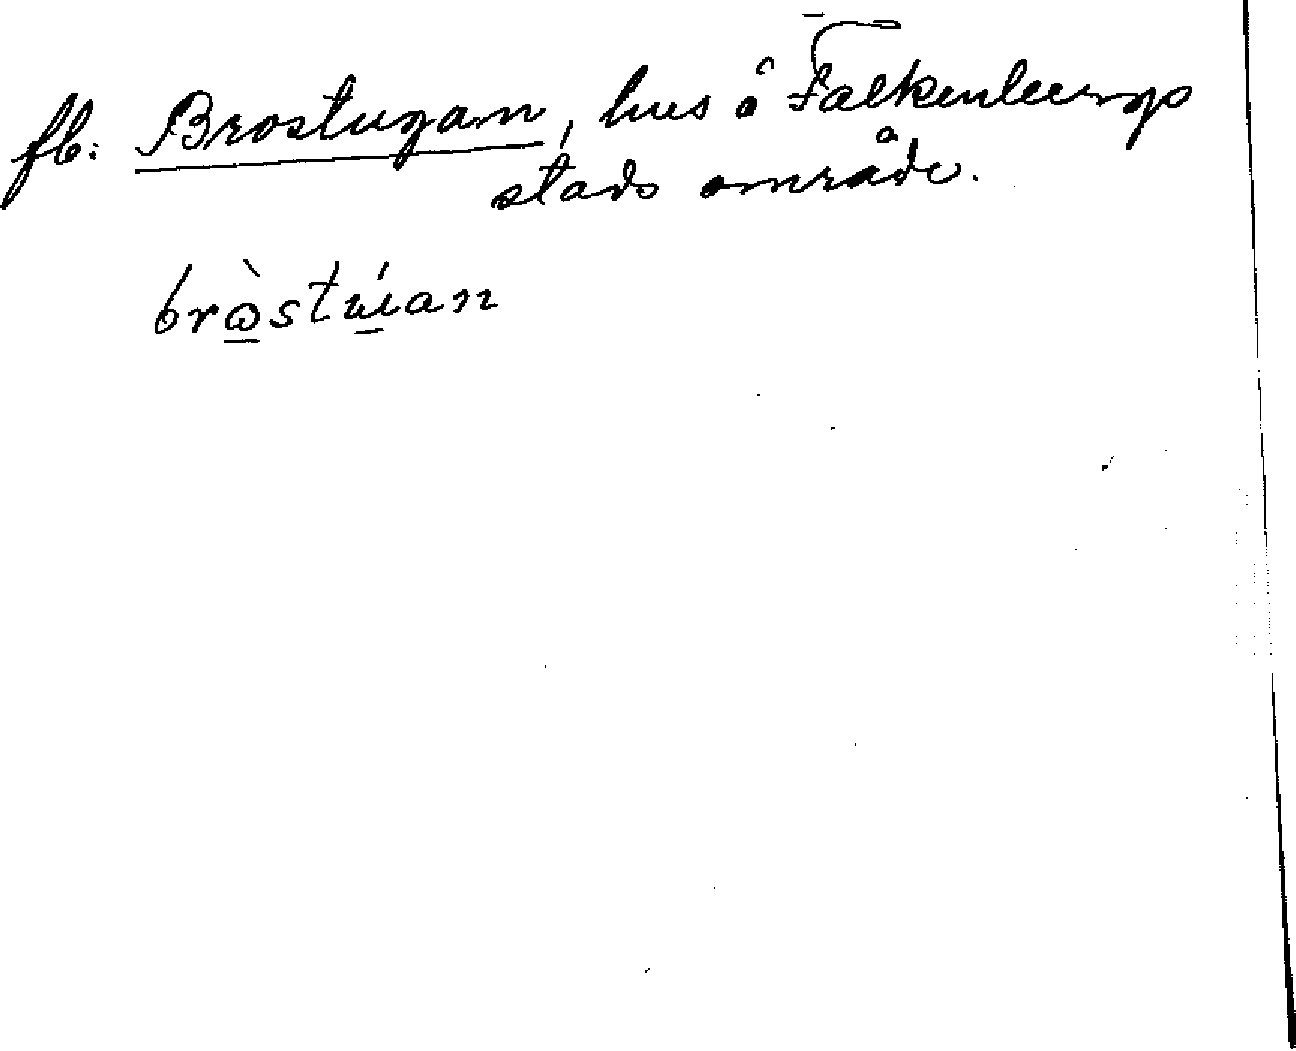 fb. Brostugan, hus å Falkenbergs
stads område.
bròstúian